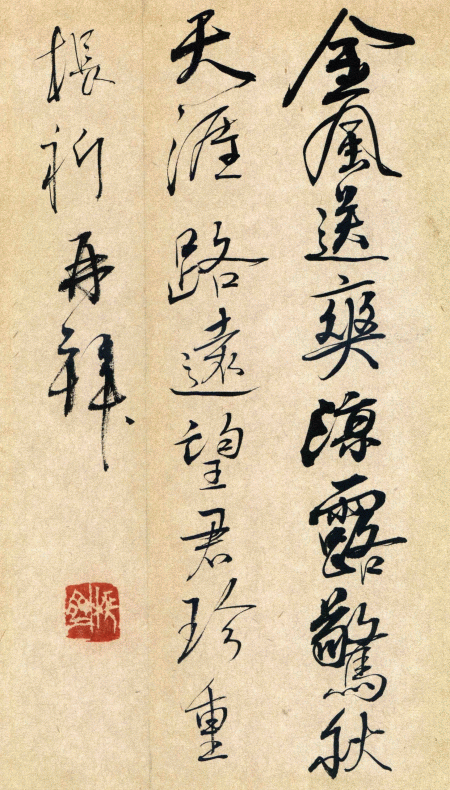 金風送爽涼露驚秋
天涯路遠望君珍重
張祈再拜